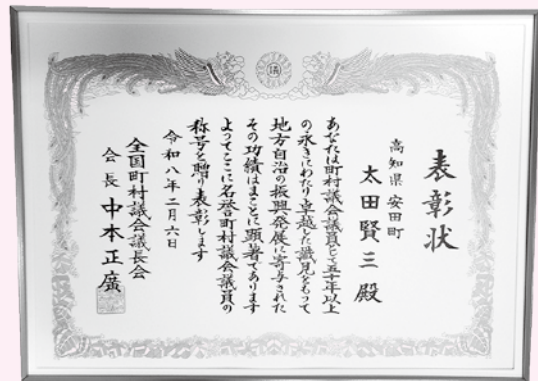 表彰状
高知県 安田町
太田賢三 殿
あなたは町村議会議員として五十年以上
の永きにわたり卓越した識見をもって
地方自治の振興発展に寄与された
その功績はまことに顕著であります
よってここに名誉町村議会議員の
称号を贈り表彰します
令和八年二月六日
全国町村議会議長会
会長 中本正廣